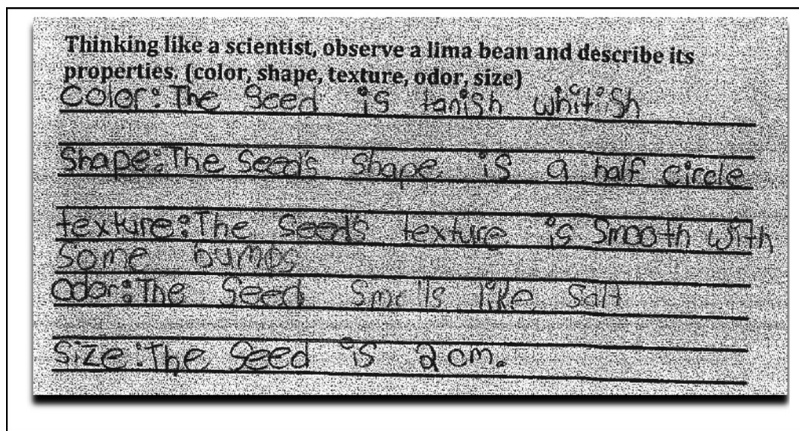 Thinking like a scientist, observe a lima bean and describe its
properties. (color, shape, texture, odor, size)
Color: The Seed is tanish whitish
Shape: The Seed's Shape is a half circle
texture: The Seed's texture is Smooth with
Some bumps
Odor: The Seed Smells like Salt
Size: The Seed is 2 cm.